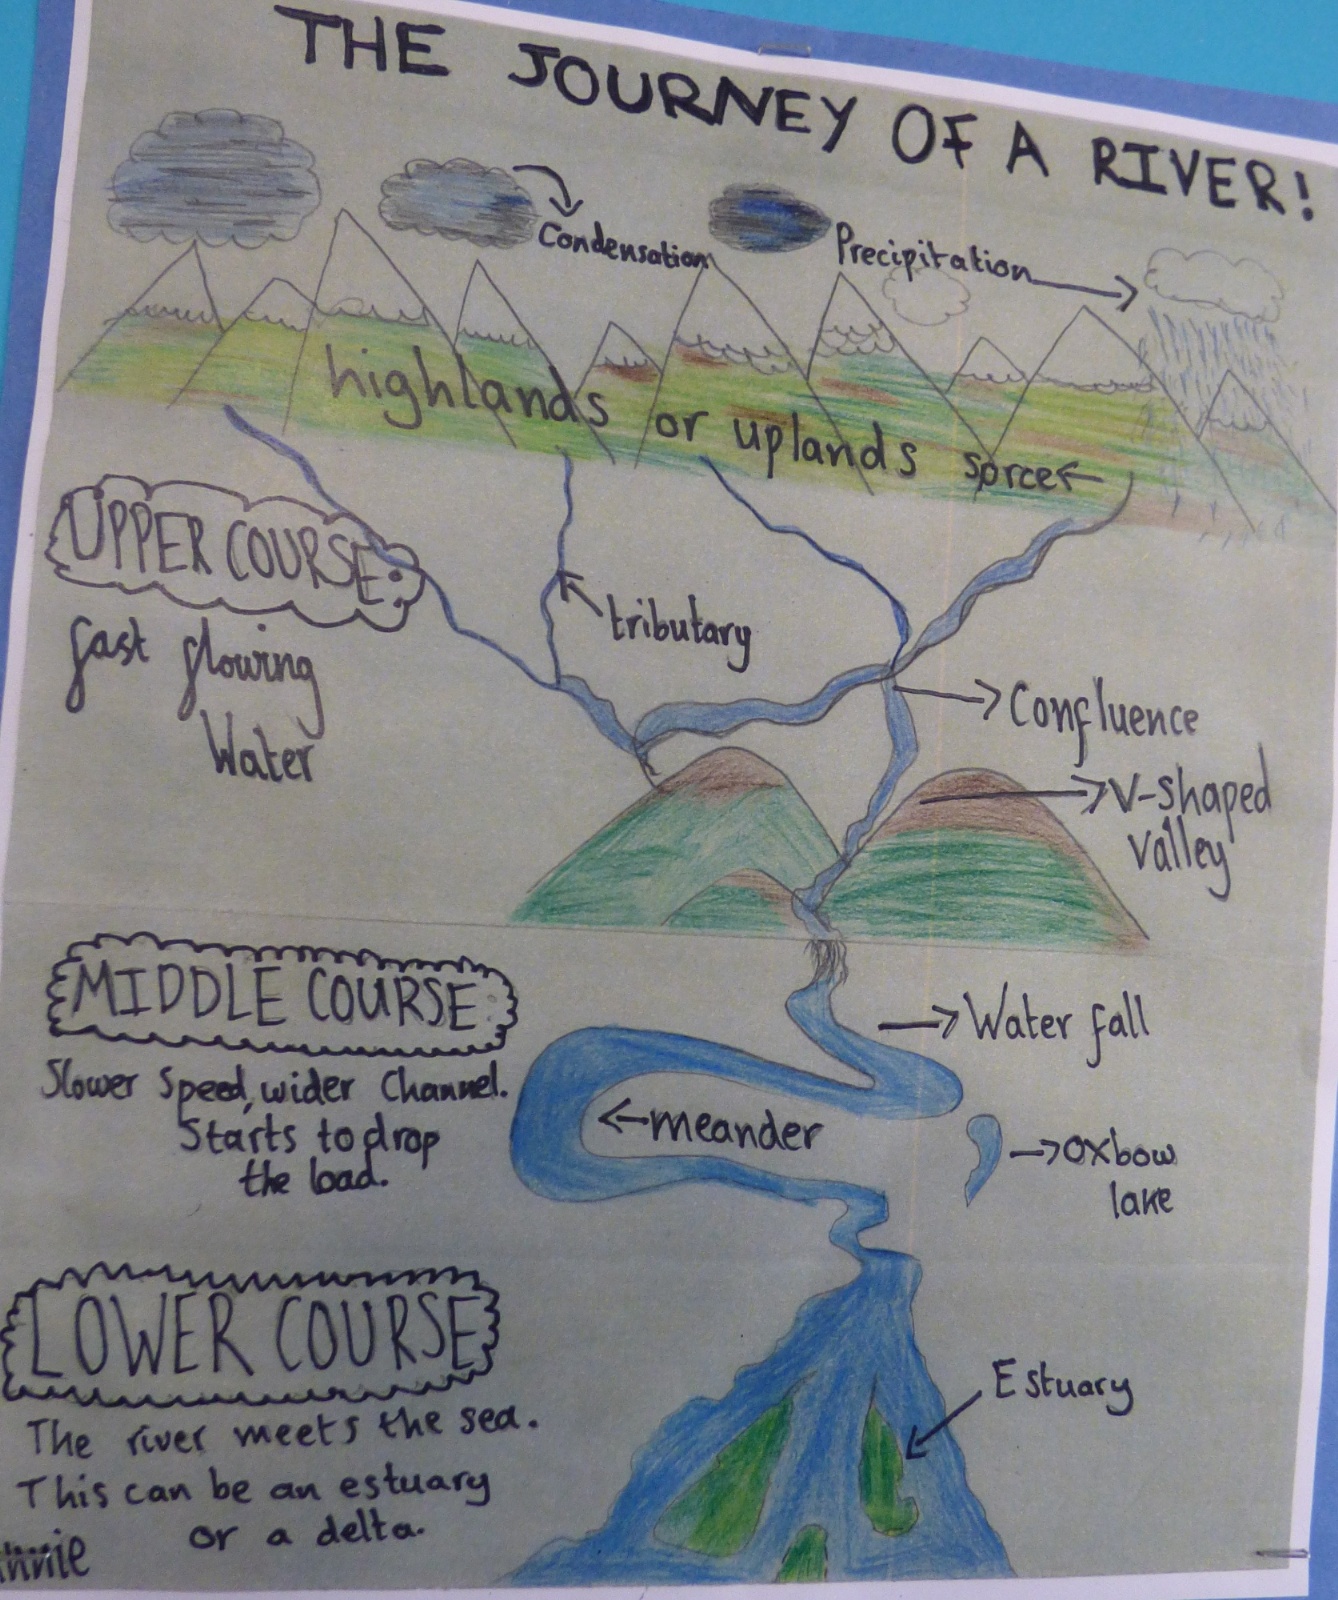 THE JOURNEY OF A RIVER!
Condensation
Precipitation
highlands or uplands sorce
UPPER COURSE:
fast flowing
Water
tributary
Confluence
V-shaped
valley
MIDDLE COURSE:
Slower speed, wider Channel.
Starts to drop
the load.
Water fall
meander
oxbow
lake
LOWER COURSE
The river meets the sea.
This can be an estuary
or a delta.
Estuary